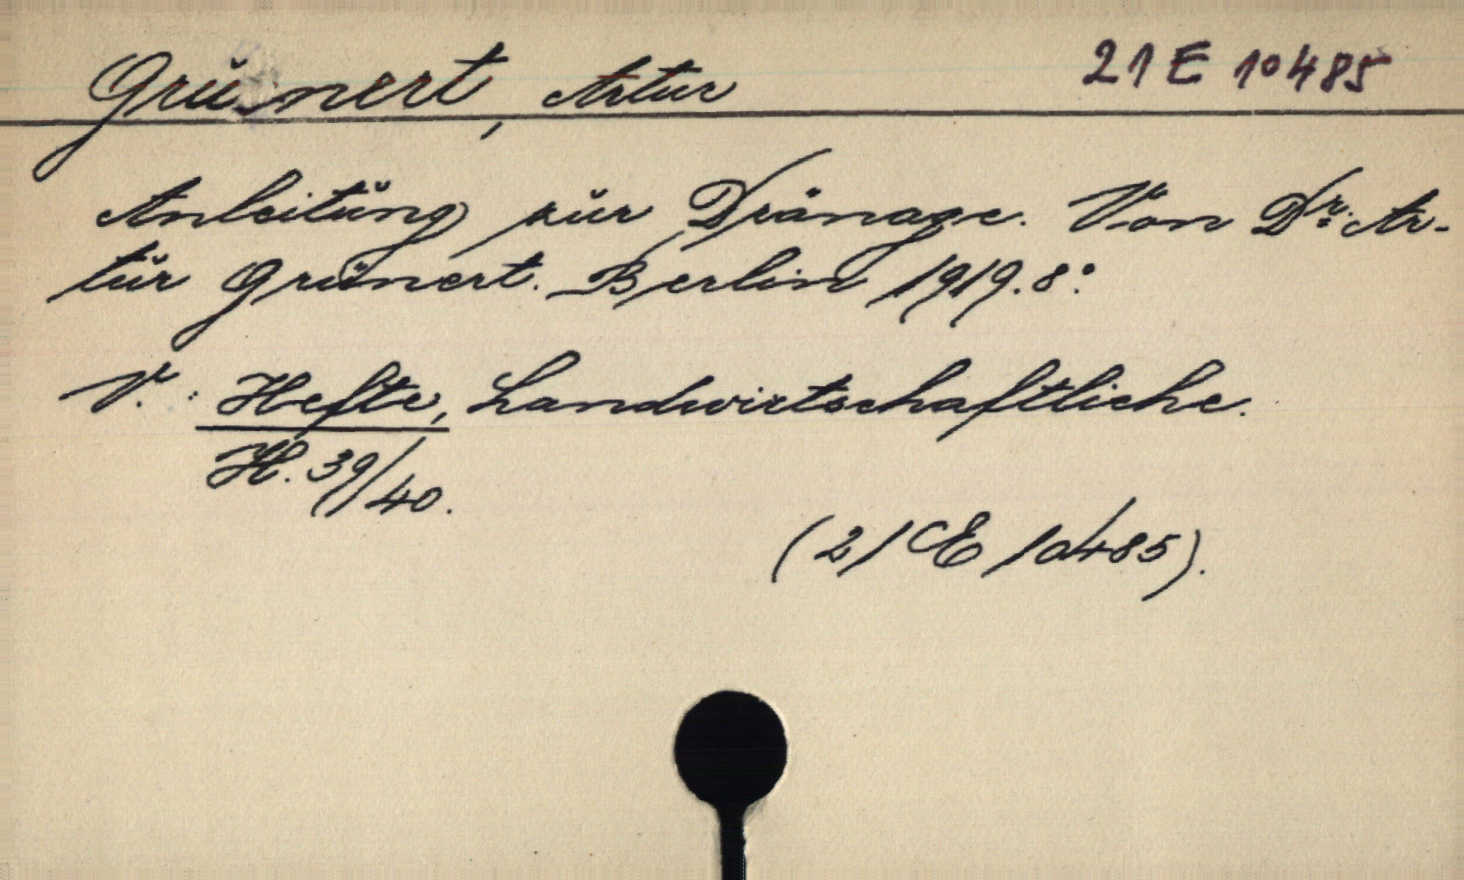 Grünert, Artur
21 E 10485
Anleitung zur Dränage. Von Dr. Ar-
tur Grünert. Berlin 1919. 8°.
V.: Hefte, Landwirtschaftliche.
H. 39/40.
(21 E 10485).